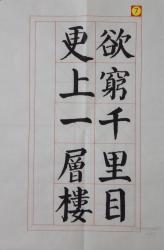 欲窮千里目
更上一層樓
7